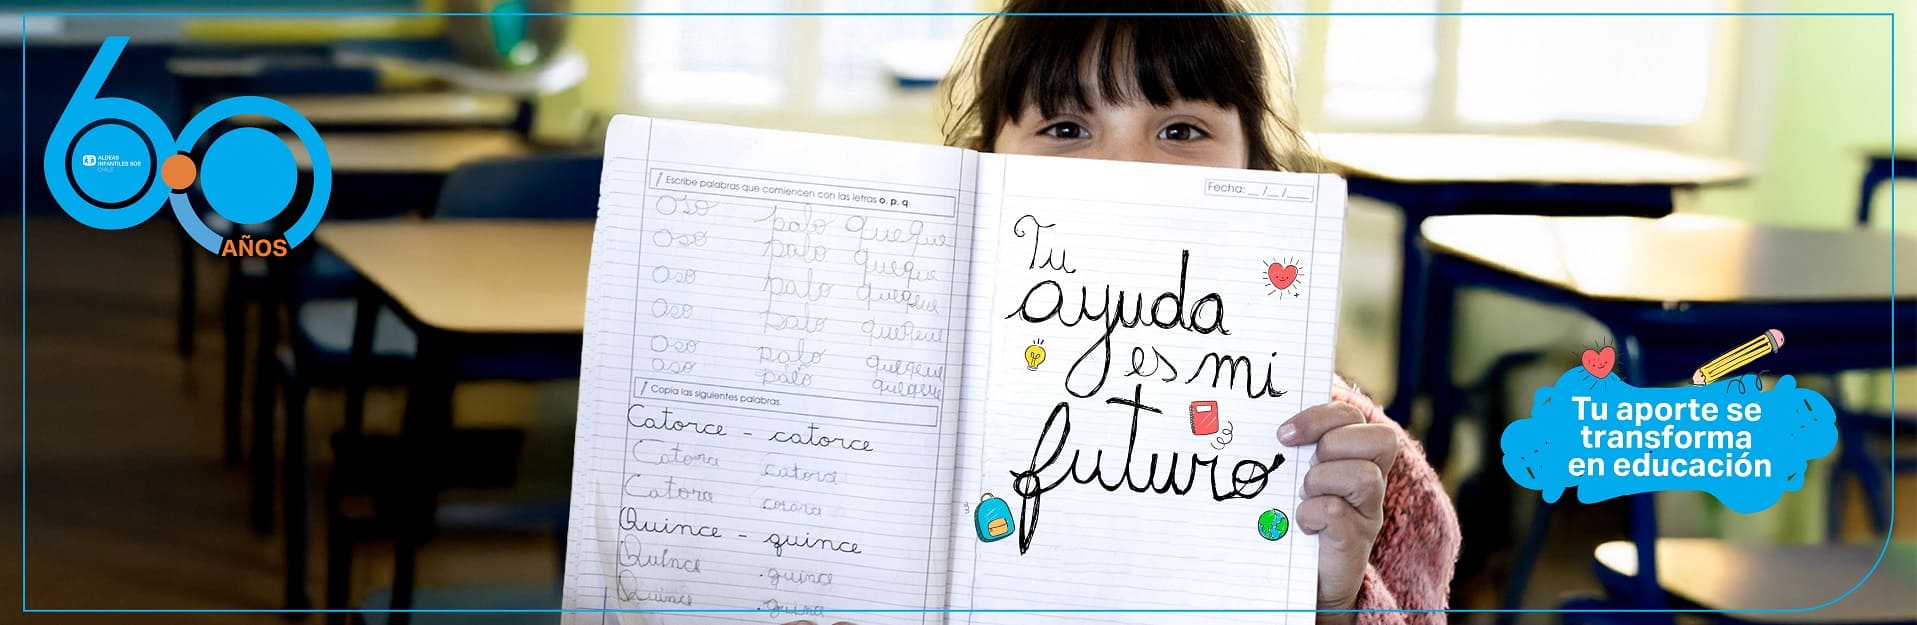 60
ALDEAS
INFANTILES SOS
CHILE
AÑOS
Escribe palabras que comiencen con las letras o, p, q.
oso palo queque
oso palo queque
oso palo queque
oso palo queque
oso palo queque
oso palo queque
Copia las siguientes palabras.
Catorce - catorce
Quince - quince
Quince quince
Quince
Fecha: __ /__ /____
Tu
ayuda
es mi
futuro
Tu aporte se
transforma
en educación